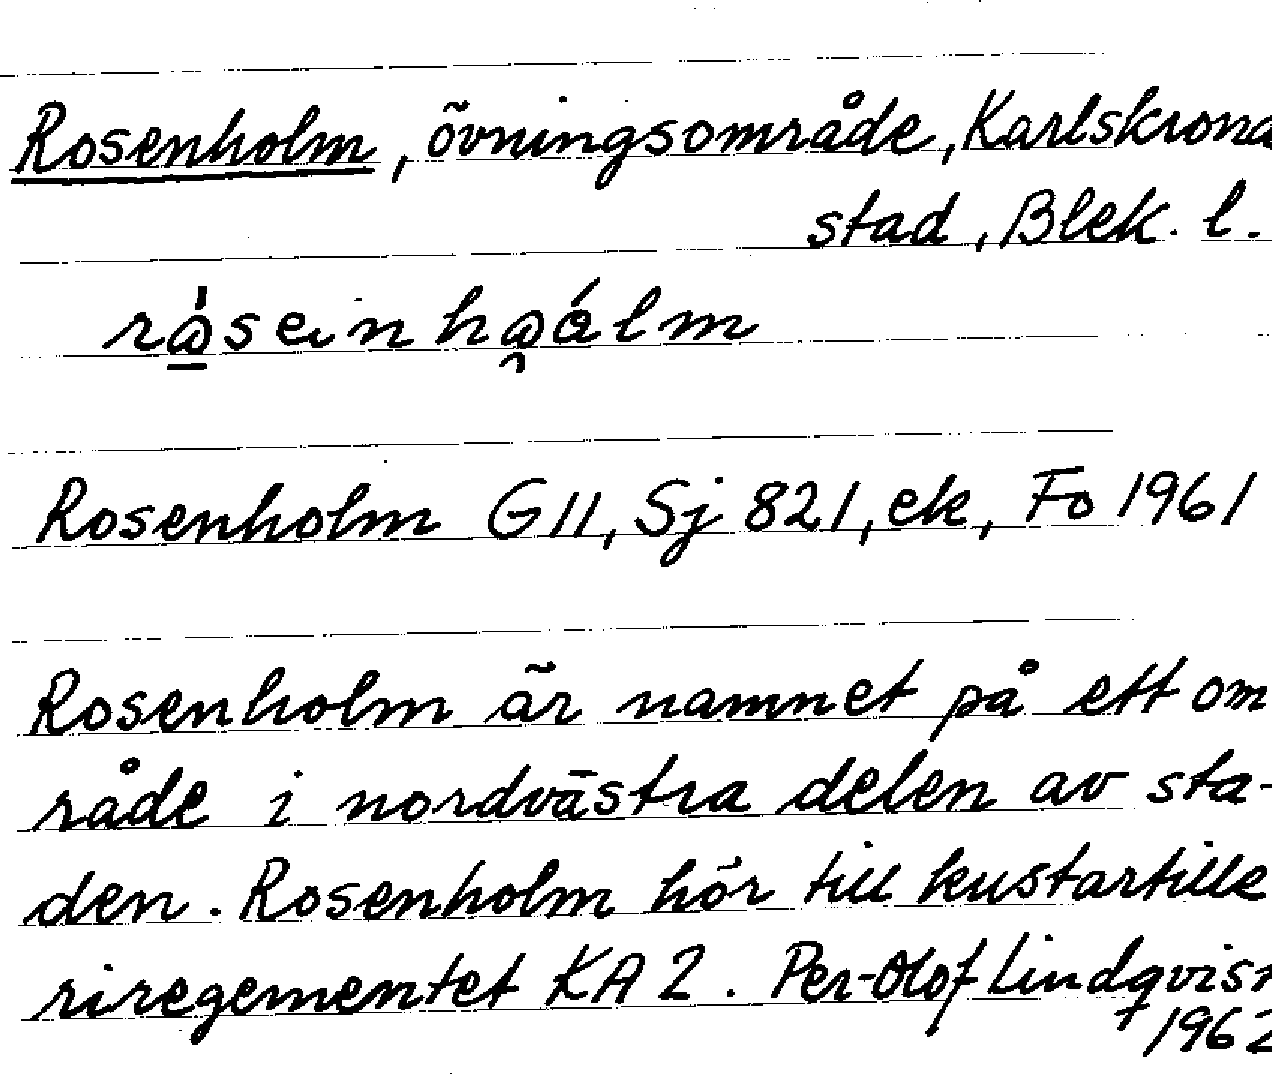 Rosenholm, övningsområde, Karlskrona
stad, Blek. l.
Rosenholm G11, Sj 821, ek, Fo 1961
Rosenholm är namnet på ett om
råde i nordvästra delen av sta-
den. Rosenholm hör till kustartille
riregementet KA 2. Per-Olof Lindqvist
1962